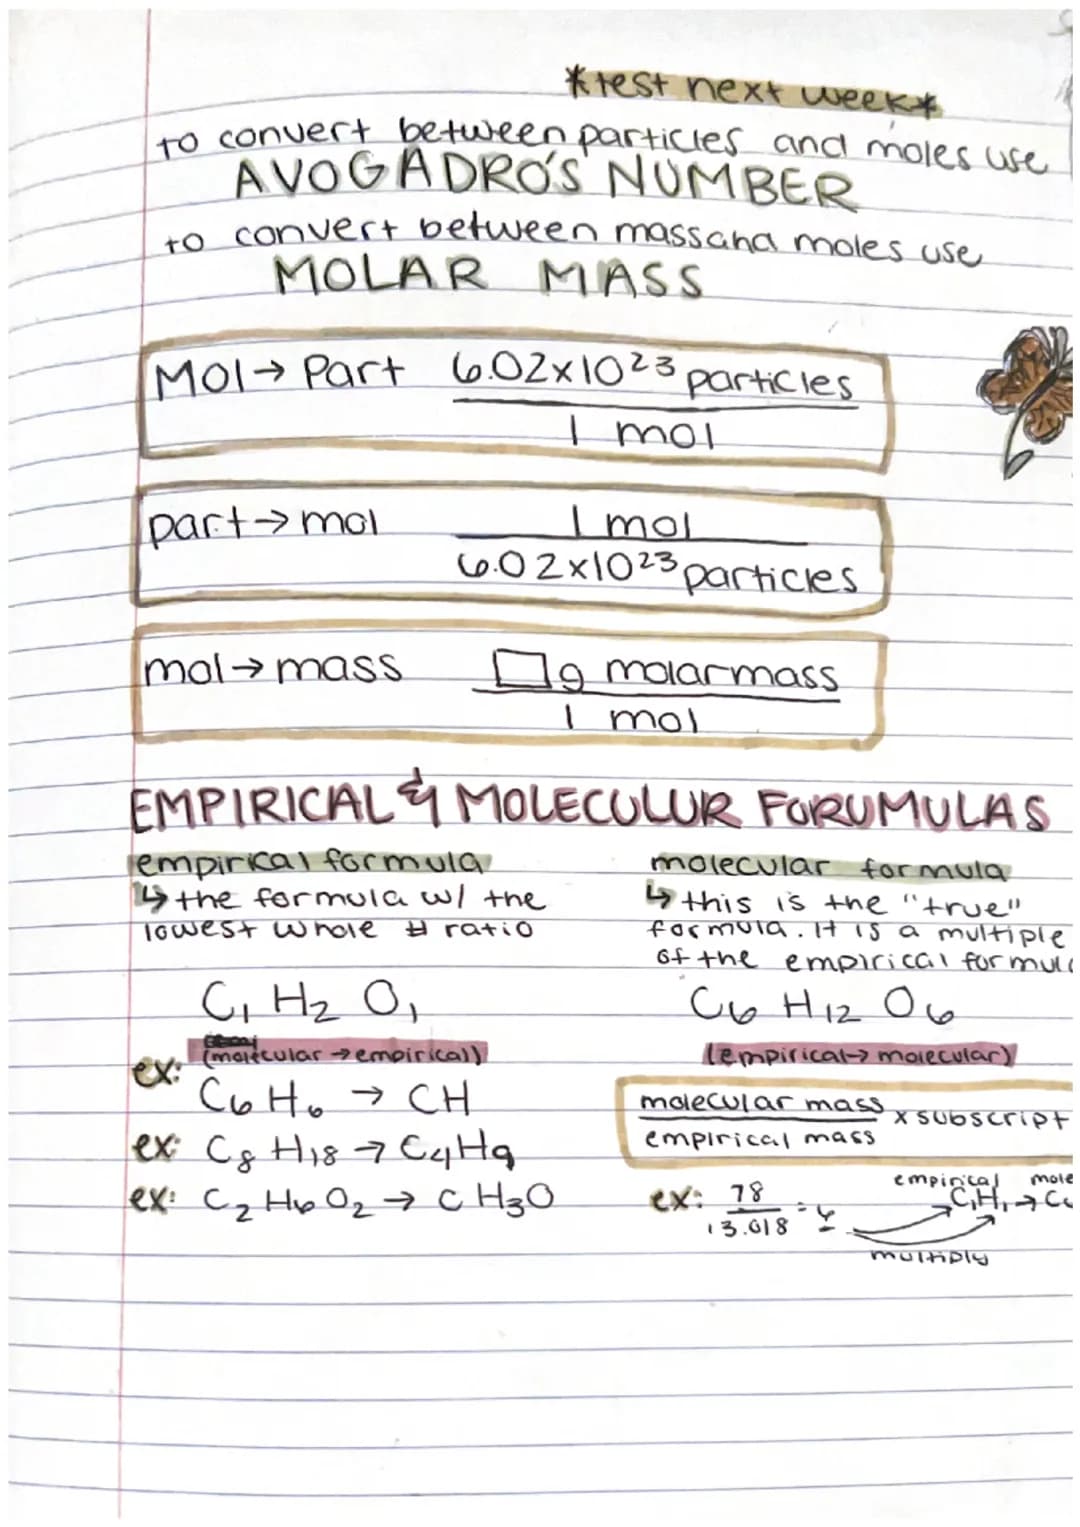 *test next week*
to convert between particles and moles use
AVOGADRO'S NUMBER
to convert between mass and moles use
MOLAR MASS
Mol → Part 6.02x10²³ particles
1 mol
part → mol 1 mol
6.02x10²³ particles
mol → mass □g molar mass
1 mol
EMPIRICAL & MOLECULUR FORUMULAS
empirical formula
↳ the formula w/ the
lowest whole # ratio
C₁ H₂ O₁
(molecular → empirical)
ex:
C₆ H₆ → CH
ex: C₈ H₁₈ → C₄H₉
ex: C₂ H₆ O₂ → C H₃O
molecular formula
↳ this is the "true"
formula. It is a multiple
of the empirical formula
C₆ H₁₂ O₆
(empirical → molecular)
molecular mass x subscript
empirical mass
empirical mole
ex: 78 = 6 C₁H₁ → C₆
13.018
multiply